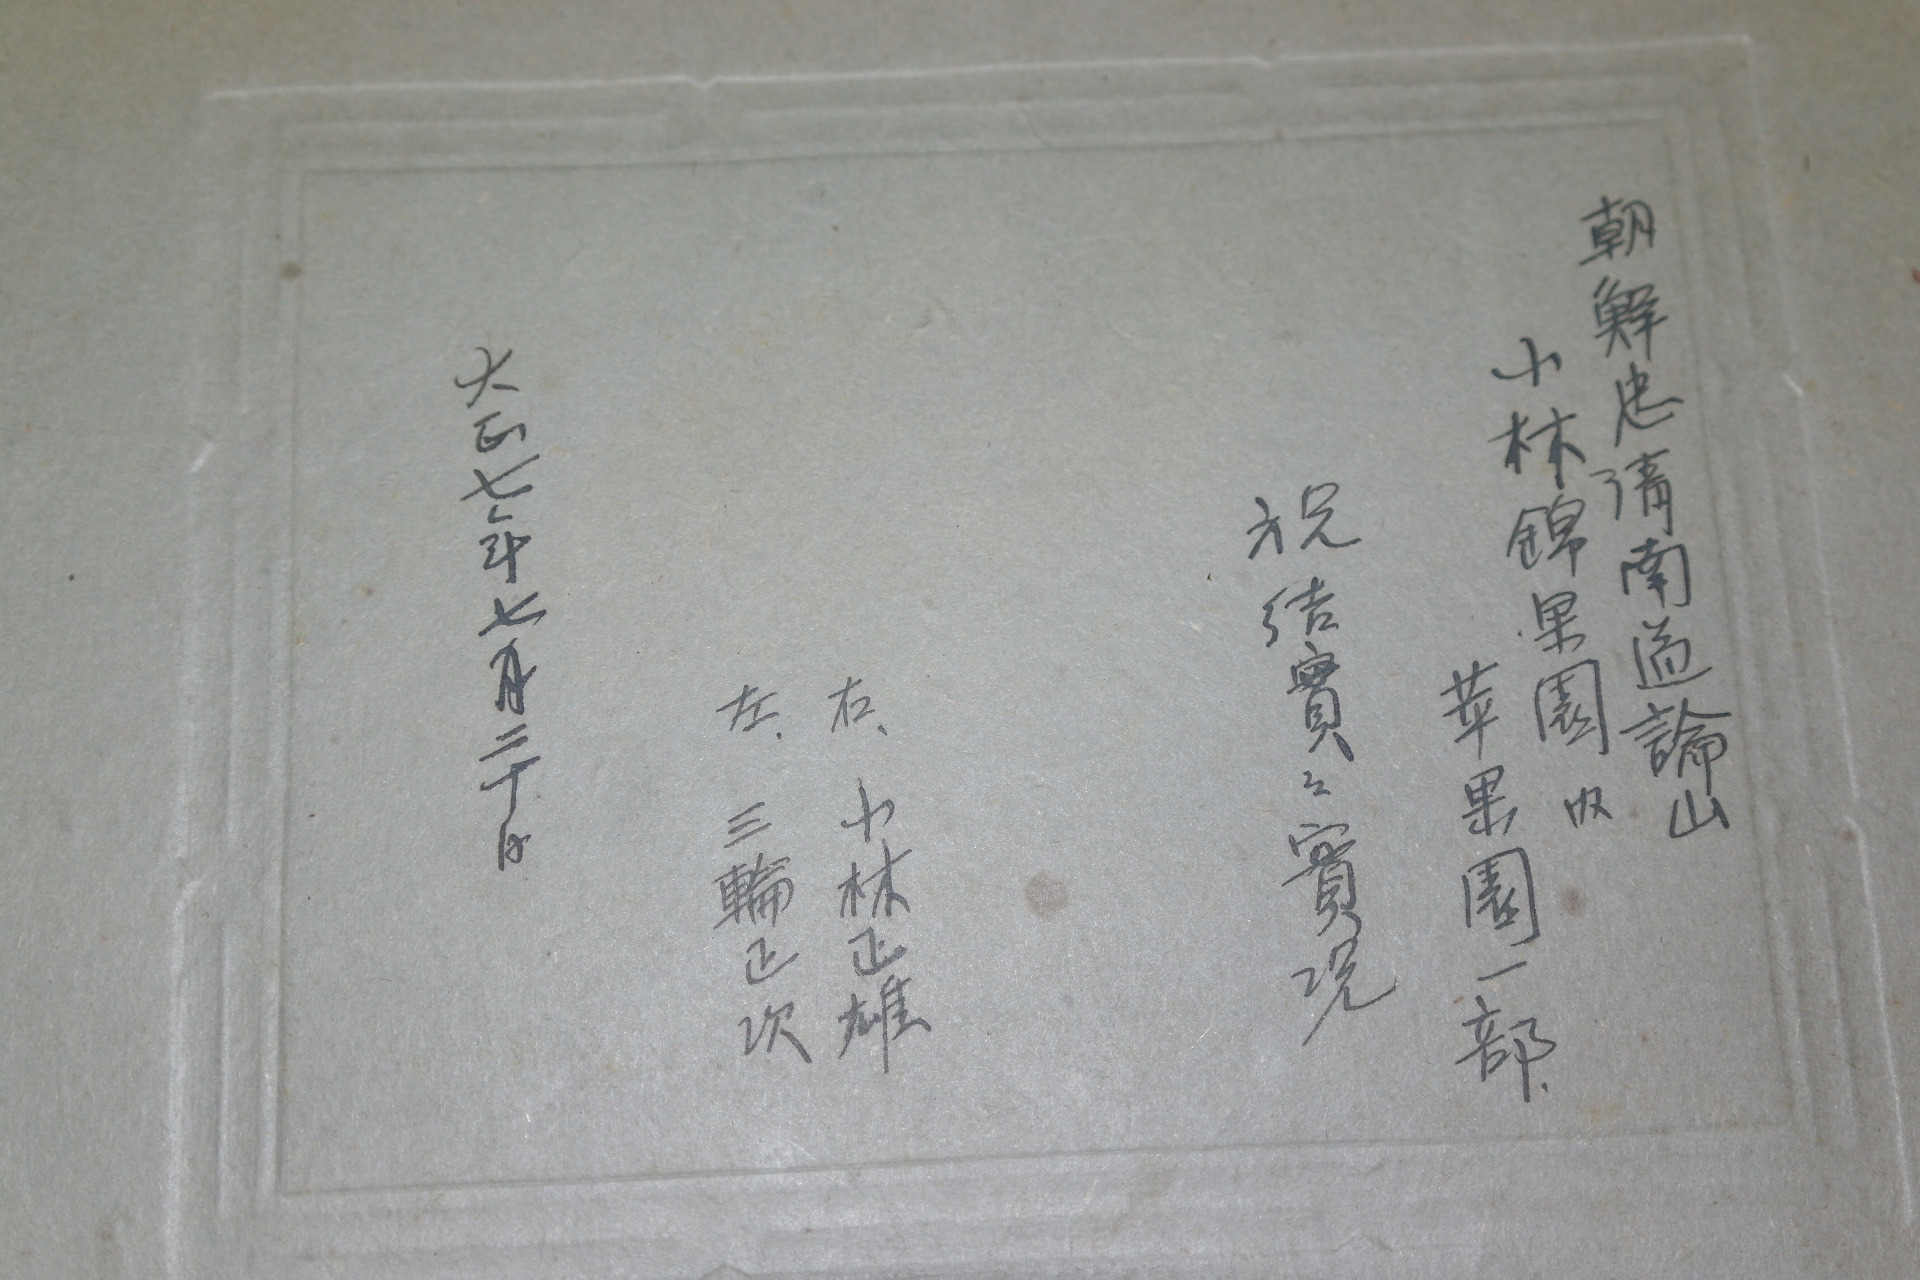 朝鮮忠清南道論山
小林錦果園内
苹果園一部
祝結實之實況
右、小林正雄
左、三輪正次
大正七年七月二十日